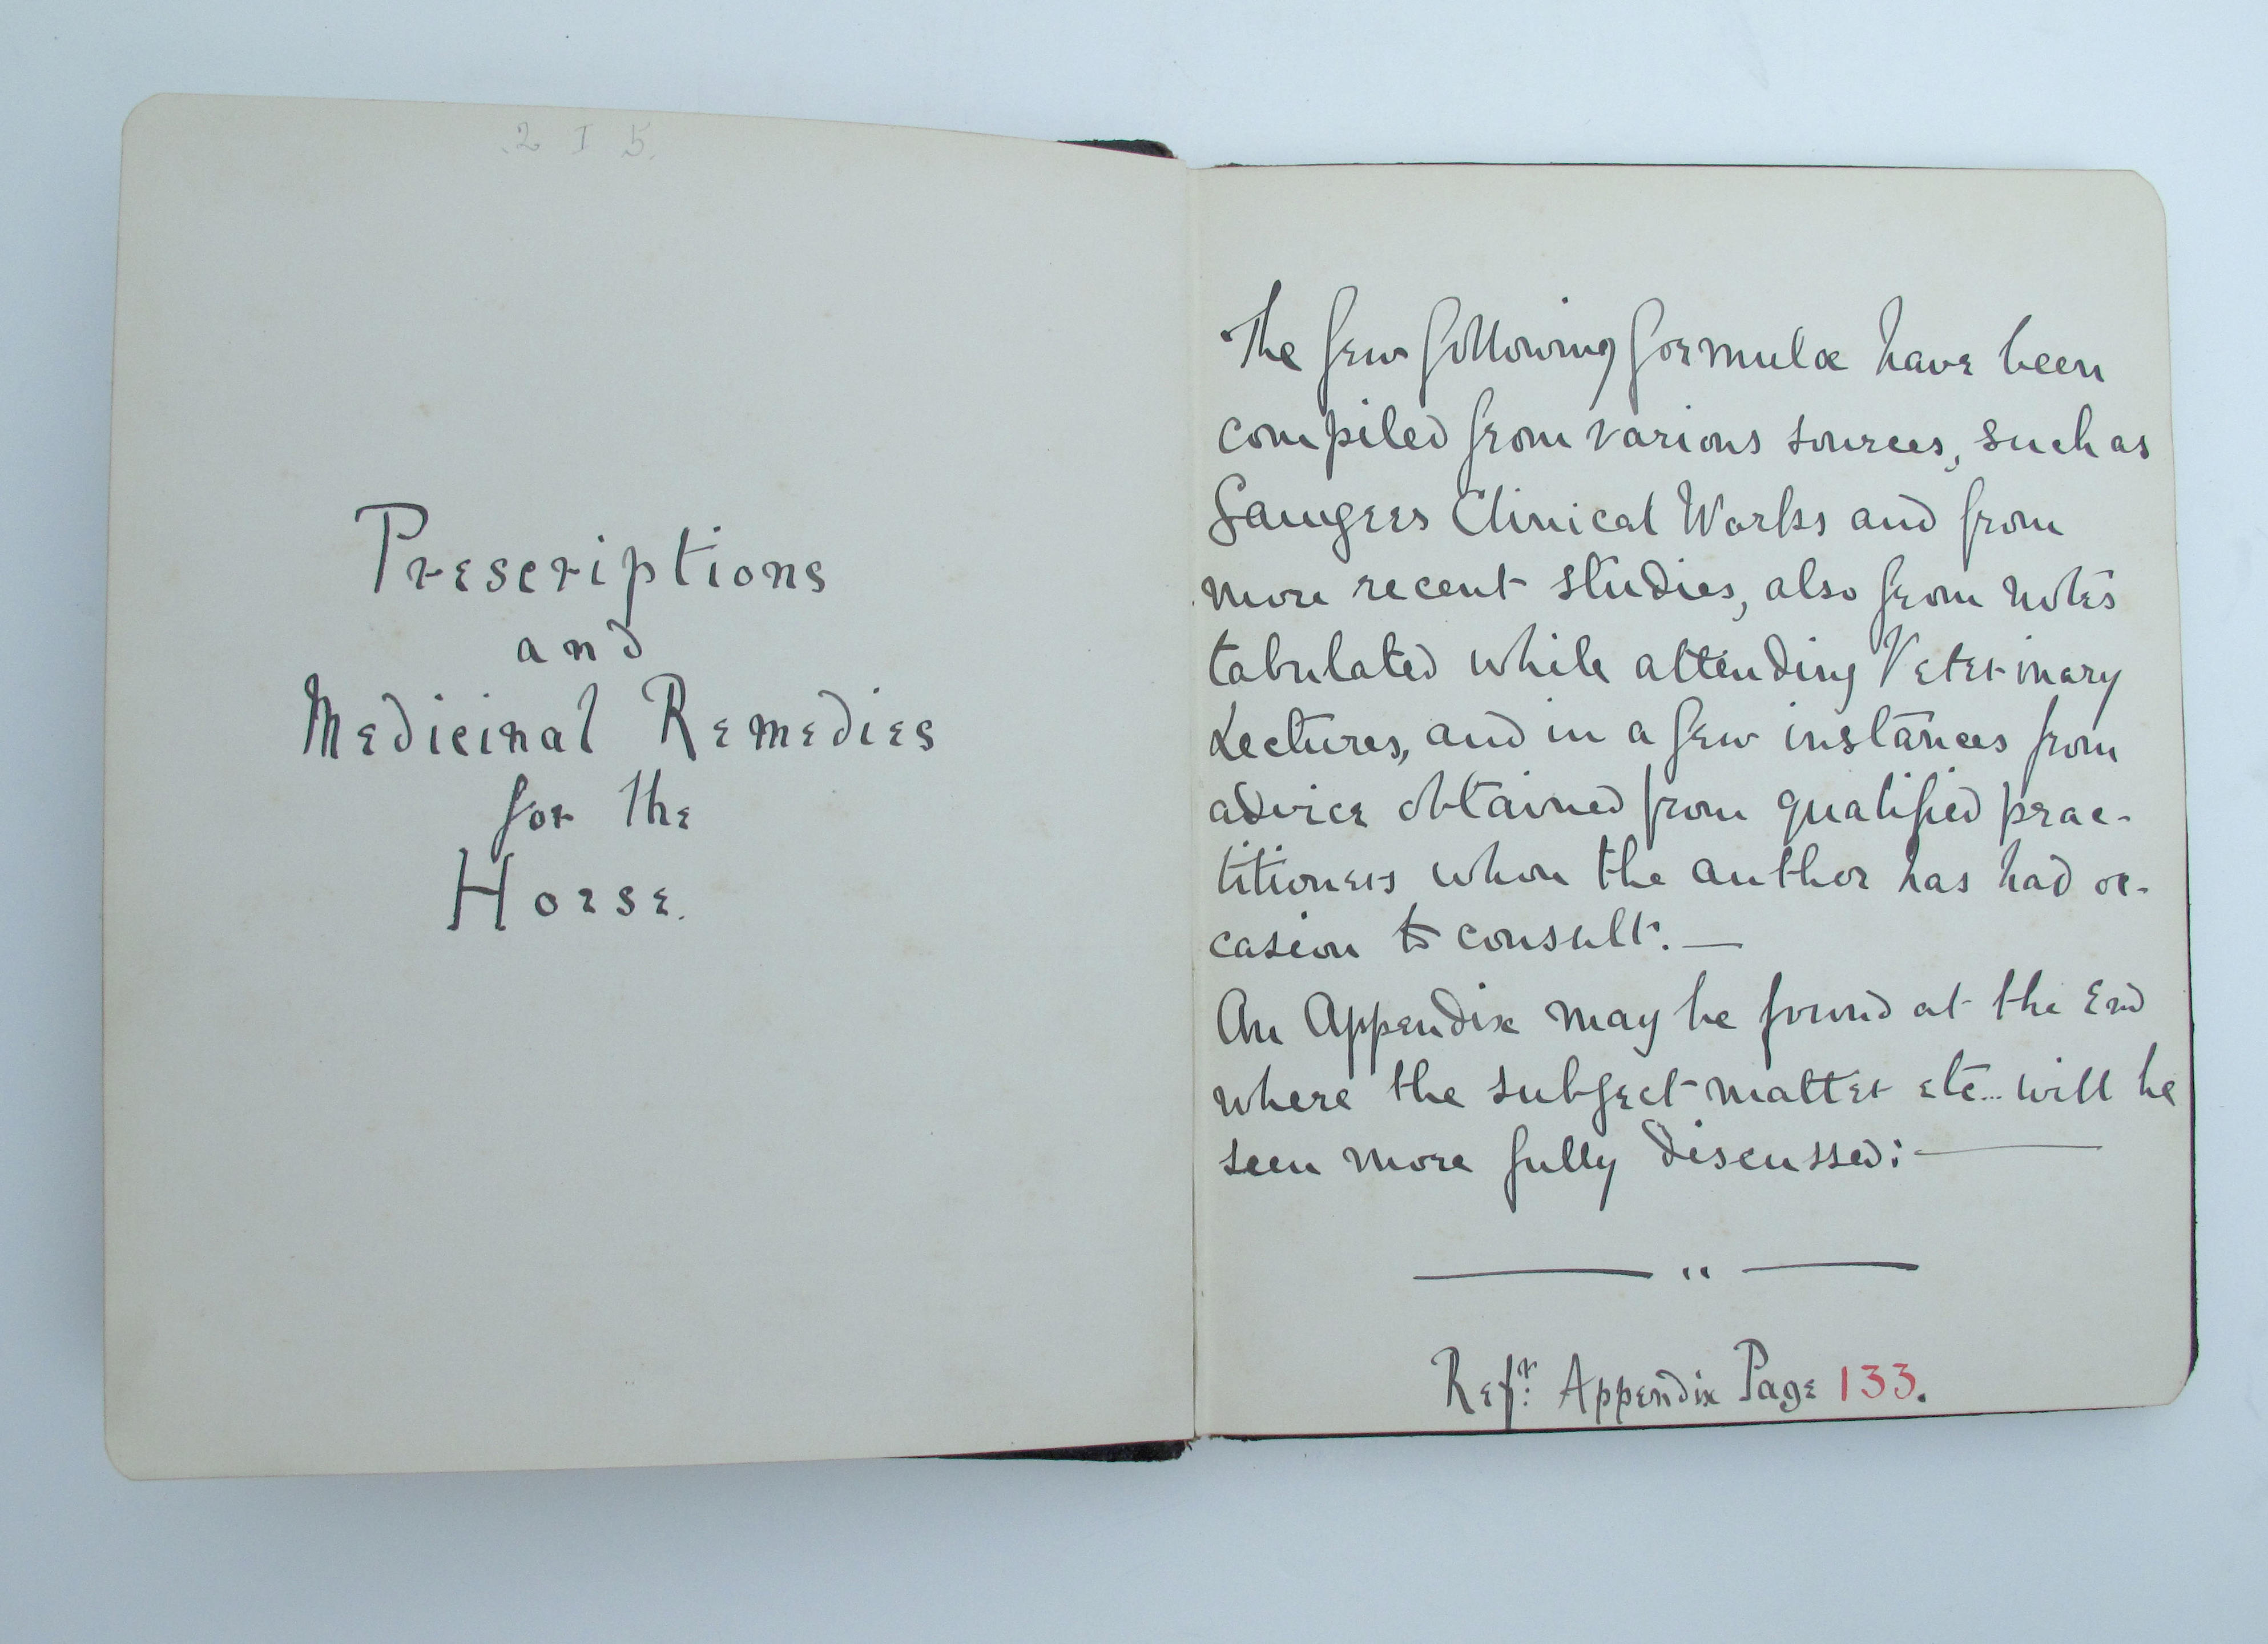 2 I 5.
Prescriptions
and
Medicinal Remedies
for the
Horse.
The few following formulæ have been
compiled from various sources, such as
Gamgees Clinical Works and from
more recent studies, also from notes
tabulated while attending Veterinary
Lectures, and in a few instances from
advice obtained from qualified prac-
titioners whom the author has had oc-
casion to consult. —
An Appendix may be found at the End
where the subject matter etc... will be
seen more fully discussed: —
Refr: Appendix Page 133.